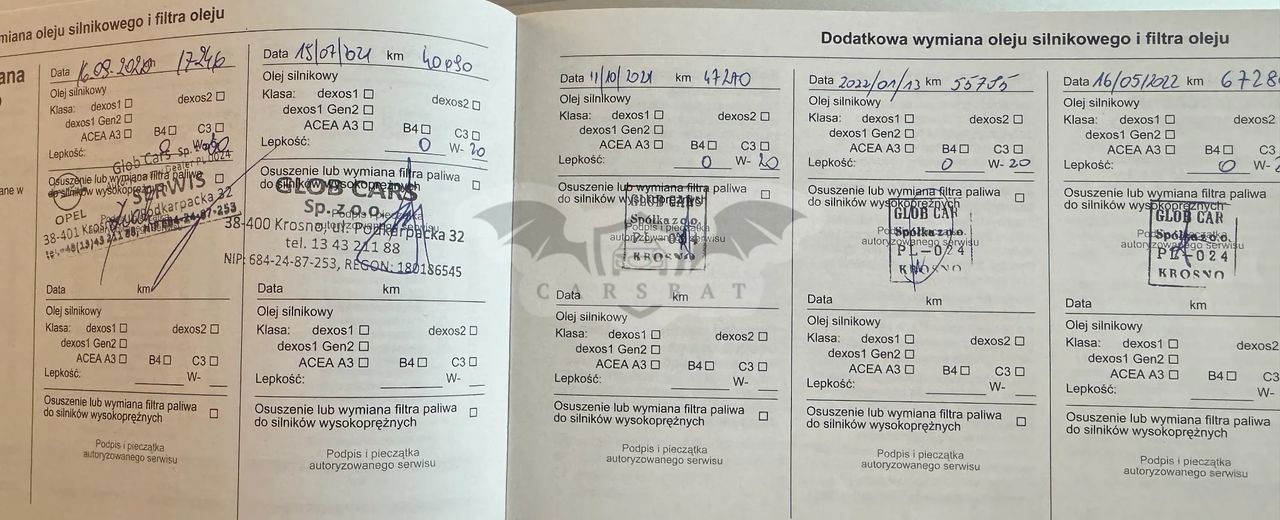 miana oleju silnikowego i filtra oleju
ana
ane w
Data 16.09.2020 17246
Olej silnikowy
Klasa: dexos1 dexos2
dexos1 Gen2
ACEA A3 B4 C3
Lepkość: 0
Glob Cars Sp.
Dealer PL 0024
Osuszenie lub wymiana filtra paliwa
do silników wysokoprężnych
SERWIS
OPEL
Podkarpacka 32
38-401 Krosno
tel. +48(13)43 211 88, NIP 684-24-87-253
Data km
Olej silnikowy
Klasa: dexos1 dexos2
dexos1 Gen2
ACEA A3 B4 C3
Lepkość: W-
Osuszenie lub wymiana filtra paliwa
do silników wysokoprężnych
Podpis i pieczątka
autoryzowanego serwisu
Data 15/07/2021 km 40890
Olej silnikowy
Klasa: dexos1 dexos2
dexos1 Gen2
ACEA A3 B4 C3
Lepkość: 0 W-20
Osuszenie lub wymiana filtra paliwa
do silników wysokoprężnych
GLOB CARS
Sp. z o.o.
Podpis i pieczątka
autoryzowanego serwisu
38-400 Krosno, ul. Podkarpacka 32
tel. 13 43 211 88
NIP: 684-24-87-253, REGON: 180186545
Data km
Olej silnikowy
Klasa: dexos1 dexos2
dexos1 Gen2
ACEA A3 B4 C3
Lepkość: W-
Osuszenie lub wymiana filtra paliwa
do silników wysokoprężnych
Podpis i pieczątka
autoryzowanego serwisu
Dodatkowa wymiana oleju silnikowego i filtra oleju
Data 11/10/2021 km 47270
Olej silnikowy
Klasa: dexos1 dexos2
dexos1 Gen2
ACEA A3 B4 C3
Lepkość: 0 W-20
Osuszenie lub wymiana filtra paliwa
do silników wysokoprężnych
GLOB CARS
Spółka z o.o.
Podpis i pieczątka
autoryzowanego serwisu
KROSNO
CARSBAT
Data km
Olej silnikowy
Klasa: dexos1 dexos2
dexos1 Gen2
ACEA A3 B4 C3
Lepkość: W-
Osuszenie lub wymiana filtra paliwa
do silników wysokoprężnych
Podpis i pieczątka
autoryzowanego serwisu
Data 2022/01/13 km 55735
Olej silnikowy
Klasa: dexos1 dexos2
dexos1 Gen2
ACEA A3 B4 C3
Lepkość: 0 W-20
Osuszenie lub wymiana filtra paliwa
do silników wysokoprężnych
GLOB CAR
Spółka z o.o.
Podpis i pieczątka
autoryzowanego serwisu
PL-024
KROSNO
Data km
Olej silnikowy
Klasa: dexos1 dexos2
dexos1 Gen2
ACEA A3 B4 C3
Lepkość: W-
Osuszenie lub wymiana filtra paliwa
do silników wysokoprężnych
Podpis i pieczątka
autoryzowanego serwisu
Data 16/05/2022 km 6728
Olej silnikowy
Klasa: dexos1 dexos2
dexos1 Gen2
ACEA A3 B4 C3
Lepkość: 0 W-20
Osuszenie lub wymiana filtra paliwa
do silników wysokoprężnych
GLOB CAR
Spółka z o.o.
Podpis i pieczątka
autoryzowanego serwisu
PL-024
KROSNO
Data km
Olej silnikowy
Klasa: dexos1 dexos2
dexos1 Gen2
ACEA A3 B4 C3
Lepkość: W-
Osuszenie lub wymiana filtra paliwa
do silników wysokoprężnych
Podpis i pieczątka
autoryzowanego serwisu